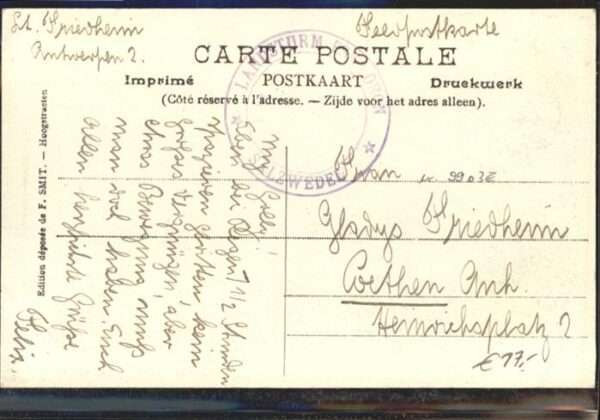 Lt. Friedheim
Antwerpen 2.
Feldpostkarte
CARTE POSTALE
Imprimé POSTKAART Drukwerk
(Côté réservé à l'adresse. — Zijde voor het adres alleen).
LANDSTURM
SALZWEDEL
Edition déposée de F. SMIT. — Hoogstraeten
Mein
Eben bei Regen 1 1/2 Stunden
spazieren geritten kein
großes Vergnügen, aber
etwas Bewegung muß
man doch haben. Euch
allen herzlichste Grüße
Felix.
Frau
99032
Gladys Friedheim
Coethen Anh.
Heinrichsplatz 2
€ 17,-